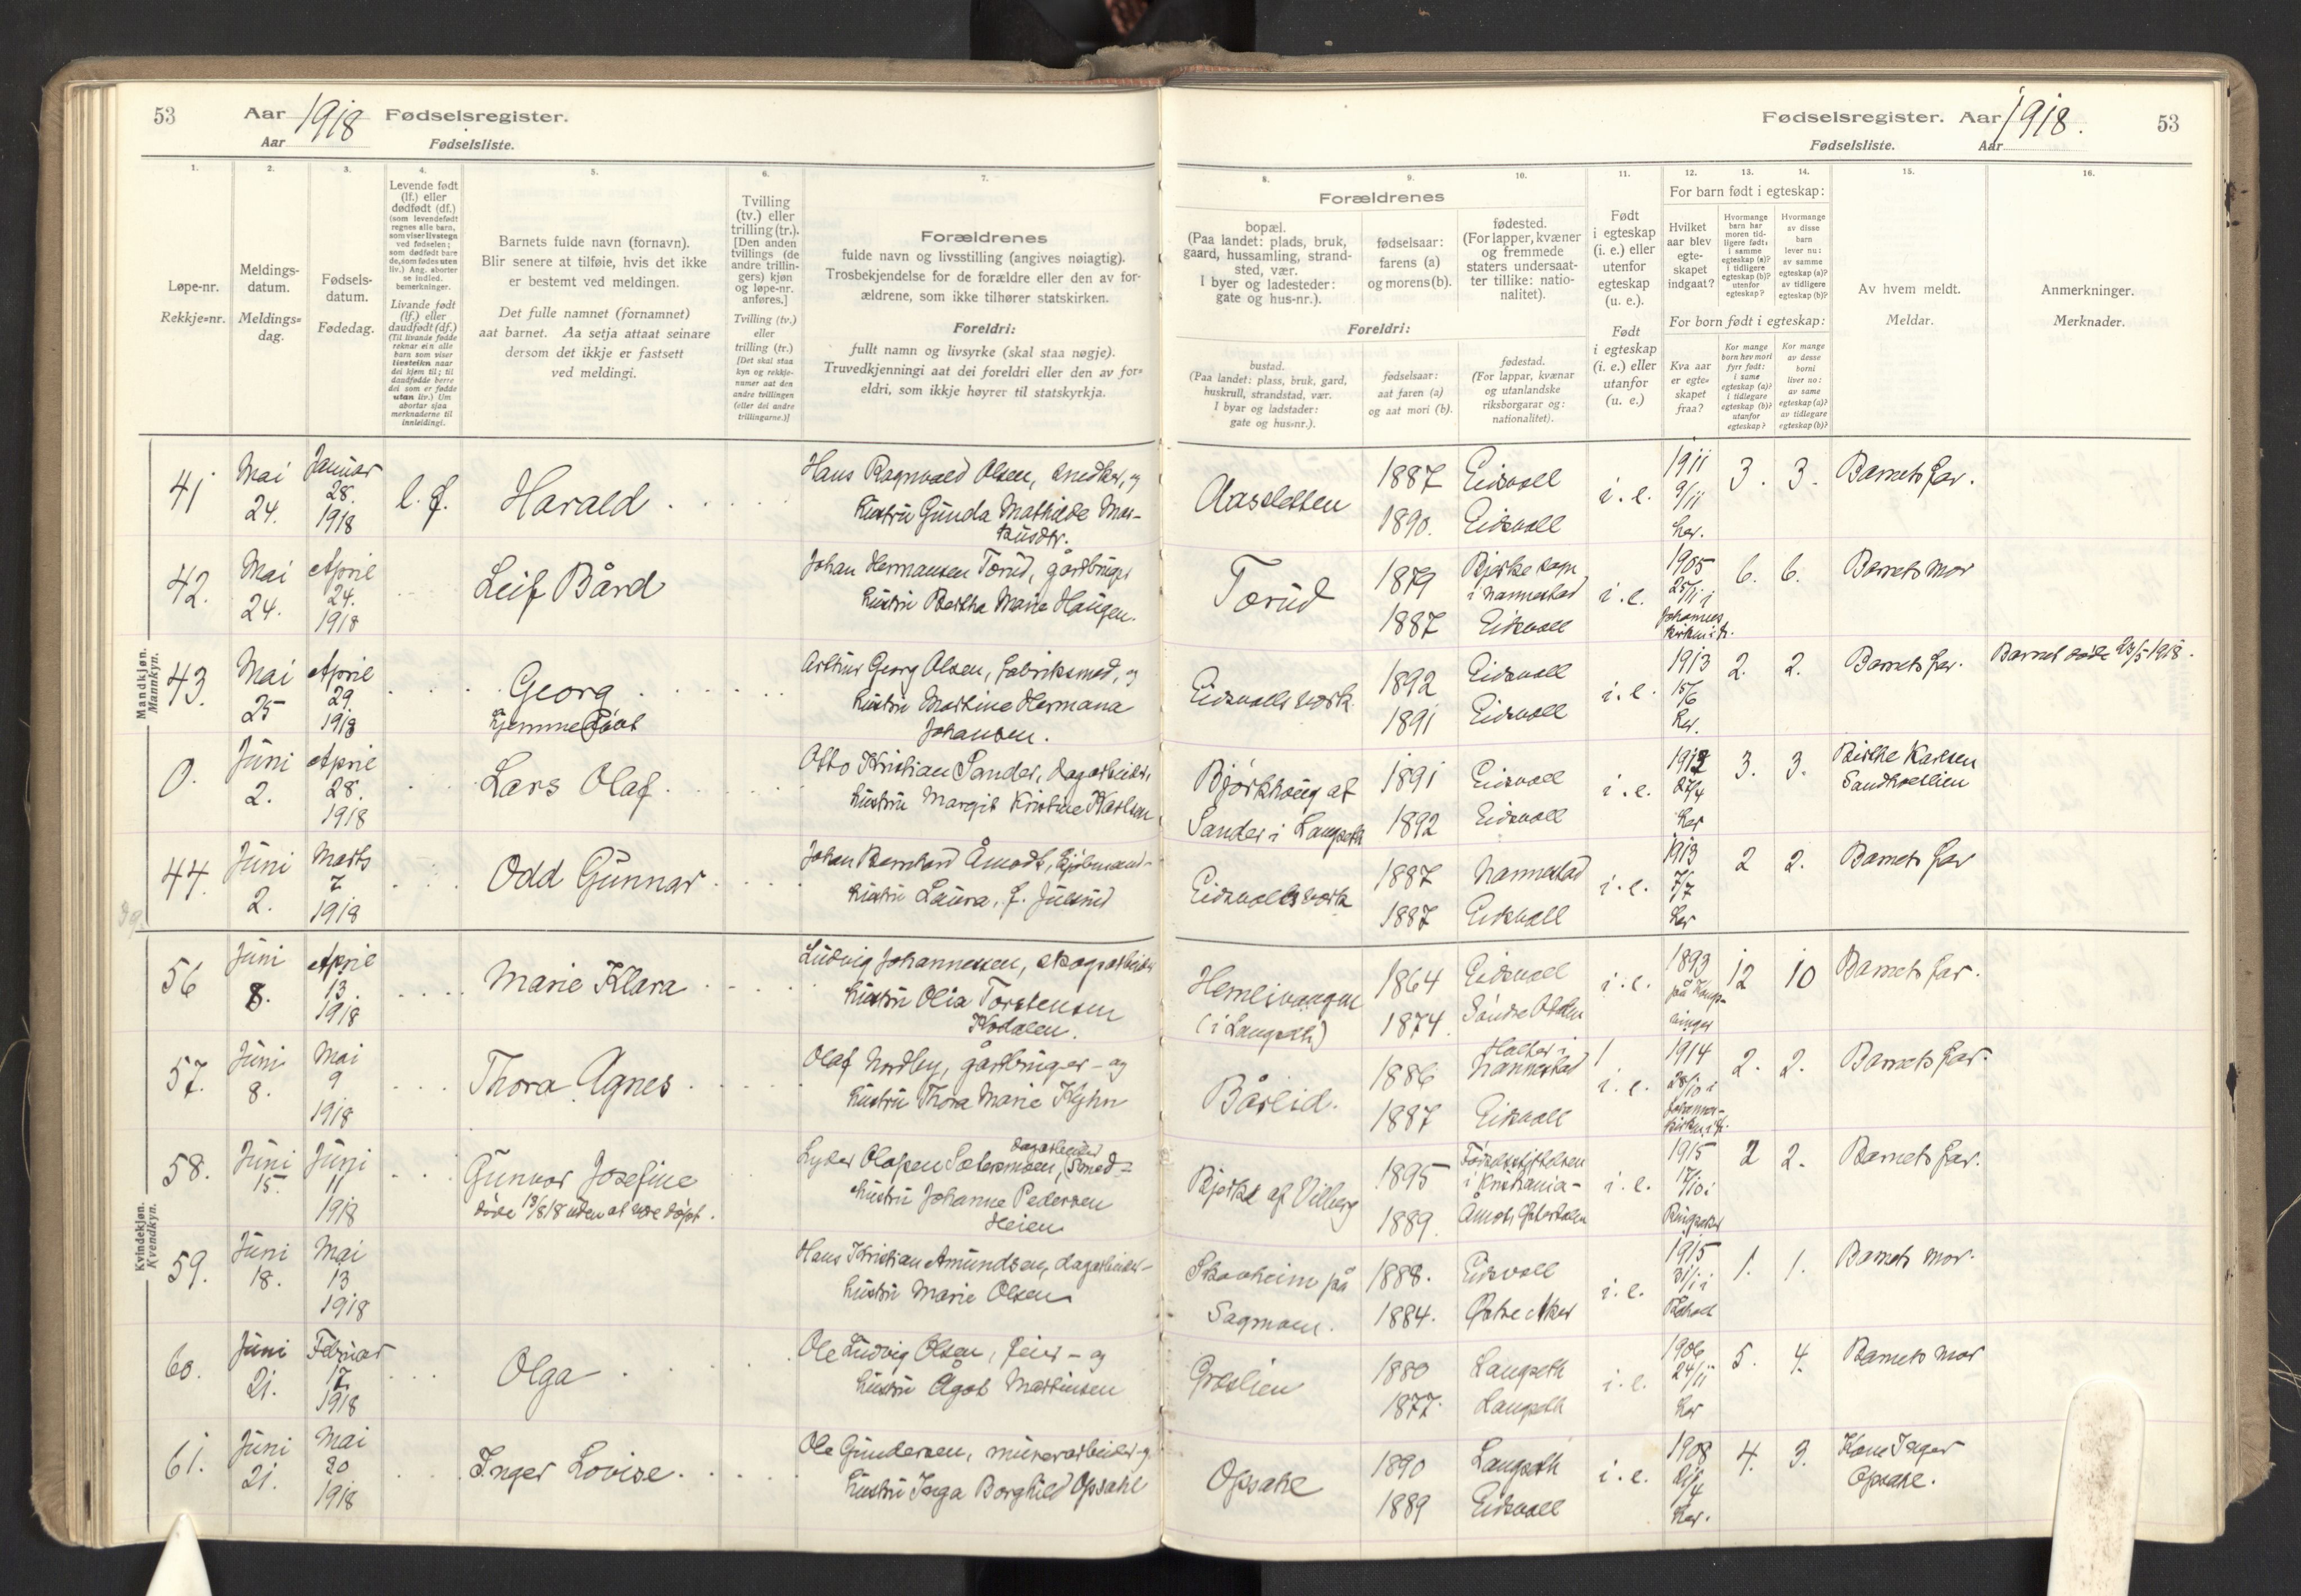 53
Aar 1918 Fødselsregister.
Aar
Fødselsliste.
1.
Løpe-nr.
Rekkje-nr.
2.
Meldings-
datum.
Meldings-
dag.
3.
Fødsels-
datum.
Fødedag.
4.
Levende født
(lf.) eller
dødfødt (df.)
(som levendefødt
regnes alle barn,
som viser livstegn
ved fødselen;
som dødfødt bare
de, som fødes uten
liv.) Ang. aborter
se indled.
bemerkninger.
Livande født
(lf.) eller
daudfødt (df.)
(Til livande fødde
reknar ein alle
barn som viser
livsteikn naar
dei kjem til; til
daudfødde berre
dei som er fødde
utan liv.) Um
abortar sjaa
merknaderne til
innleidingi.
5.
Barnets fulde navn (fornavn).
Blir senere at tilføie, hvis det ikke
er bestemt ved meldingen.
Det fulle namnet (fornamnet)
aat barnet. Aa setja attaat seinare
dersom det ikkje er fastsett
ved meldingi.
6.
Tvilling
(tv.) eller
trilling (tr.).
[Den anden
tvillings (de
andre trillin-
gers) kjøn
og løpe-nr.
anføres.]
Tvilling (tv.)
eller
trilling (tr.)
[Det skal staa
kyn og rekkje-
numer aat den
andre tvillingen
(eller dei andre
trillingarne.)]
7.
Forældrenes
fulde navn og livsstilling (angives nøiagtig).
Trosbekjendelse for de forældre eller den av for-
ældrene, som ikke tilhører statskirken.
Foreldri:
fullt namn og livsyrke (skal staa nøgje).
Truvedkjenningi aat dei foreldri eller den av for-
eldri, som ikkje høyrer til statskyrkja.
Fødselsregister. Aar 1918.
53
Fødselsliste. Aar
Forældrenes
8.
bopæl.
(Paa landet: plads, bruk,
gaard, hussamling, strand-
sted, vær.
I byer og ladesteder:
gate og hus-nr.).
9.
fødselsaar:
farens (a)
og morens (b).
10.
fødested.
(For lapper, kvæner
og fremmede
staters undersaat-
ter tillike: natio-
nalitet).
Foreldri:
bustad.
(Paa landet: plass, bruk, gard,
huskrull, strandstad, vær.
I byar og ladstader:
gate og hus-nr.).
fødselsaar:
aat faren (a)
og aat mori (b).
fødestad.
(For lappar, kvænar
og utanlandske
riksborgarar og:
nationalitet).
11.
Født
i egteskap
(i. e.) eller
utenfor
egteskap
(u. e.).
Født
i egteskap
(i. e.) eller
utanfor
(u. e.)
12. 13. 14.
For barn født i egteskap:
Hvilket
aar blev
egte-
skapet
indgaat?
Hvormange
barn har
moren tid-
ligere født:
i samme
egteskap (a)?
i tidligere
egteskap (b)?
utenfor
egteskap?
Hvormange
av disse
barn
lever nu:
av samme
egteskap (a)?
av tidligere
egteskap (b)?
For born født i egteskap:
Kva aar
er egte-
skapet
fraa?
Kor mange
born hev mori
fyrr født:
i same
egteskap (a)?
i tidlegare
egteskap (b)?
utanfor
egteskap?
Kor mange
av desse
borni
liver no:
av same
egteskap (a)?
av tidlegare
egteskap (b)?
15.
Av hvem meldt.
Meldar.
16.
Anmerkninger.
Merknader.
Mandkjøn.
Mannkyn.
41 Mai 24. Januar 28. 1918 l. f. Harald
Hans Ragnvald Olsen, snedker, og
hustru Gunda Mathilde Mar-
kusdtr.
Aasletten 1887 Eidsvoll
1890. Eidsvoll
i. e. 1911 9/11 her. 3. 3. Barnets far.
42. Mai 24. April 24. 1918 Leif Bård
Johan Hermansen Torud, gårdbruger
hustru Bertha Marie Haugen.
Torud 1879 Bjerke sogn
i Nannestad
1887 Eidsvoll
i. e. 1905 25/11 i Johannes kirken i Kr. 6. 6. Barnets mor
43. Mai 25 April 29. 1918 Georg
hjemmedøbt
Arthur Georg Olsen, fabriksmed, og
hustru Martine Hermana
Johansen.
Eidsvolls verk 1892 Eidsvoll
1891 Eidsvoll
i. e. 1913 15/6 her. 2. 2. Barnets far. Barnet døde 23/5 1918.
0. Juni 2. April 28. 1918 Lars Olaf
Otto Kristian Sander, dagarbeider,
hustru Margit Kristine Karlsen
Bjørkhaug af
Sander i Langseth
1891 Eidsvoll
1892 Eidsvoll
i. e. 1912 27/4 her 3. 3. Birthe Karlsen
44. Juni 2. Marts 7 1918 Odd Gunnar
Johan Bernhard Åmodt,
hustru Laura, f. Julsrud
Eidsvolls verk 1887 Nannestad
1887 Eidsvoll
i. e. 1913 7/7 her 2 2. Barnets far
39
Kvindekjøn.
Kvendkyn.
56 Juni 8. April 13. 1918 Marie Klara
Ludvig Johannessen, skogsarbeider
hustru Olia Torstensen
Hemlivangen
(i Langseth)
1864 Eidsvoll
1874. Søndre Odalen
i. e. 1893 12 10 Barnets far.
57. Juni 8. Mai 9 1918 Thora Agnes
Olaf Nordby, gårdbruger - og
hustru Thora Marie Kyhn
Bårlid. 1886 Holter i
Nannestad
1887 Eidsvoll
i. e. 1914 28/10 i Johannes- kirken i Kr. 2. 2. Barnets far.
58. Juni 15. Juni 11 1918 Gunvor Josefine
døde 13/6 18 uden at være døpt.
Lyder Olafsen Sætermoen, (Smed -
dagarbeider
hustru Johanne Pedersen
Heien
Bjerke af Vilberg 1895 Fødselsstiftelsen
i Kristiania -
1889. Åmot, Østerdalen
i. e. 1915 17/10 i Ringsaker 2 2. Barnets far.
59. Juni 18. Mai 13 1918
Hans Kristian Amundsen, dagarbeider -
hustru Marie Olsen
Skovheim på
Sagmoen.
1888. Eidsvoll
1884. Østre Aker
i. e. 1915 31/1 i 1. 1. Barnets mor.
60. Juni 21. Februar 17 1918 Olga
Ole Ludvig Olsen, feier - og
hustru Ågot Martinsen
Græslien 1880 Langseth
1877. Langseth
i. e. 1906 24/11 her 5. 4. Barnets mor
61. Juni 21. Mai 20 1918 Inger Lovise
Ole Gundersen, murerarbeider - og
hustru Inga Borghild Opsahl
Opsahl 1890 Langseth
1889 Eidsvoll
i. e. 1908 her. 4. 3. Kone Inger
Opsahl.